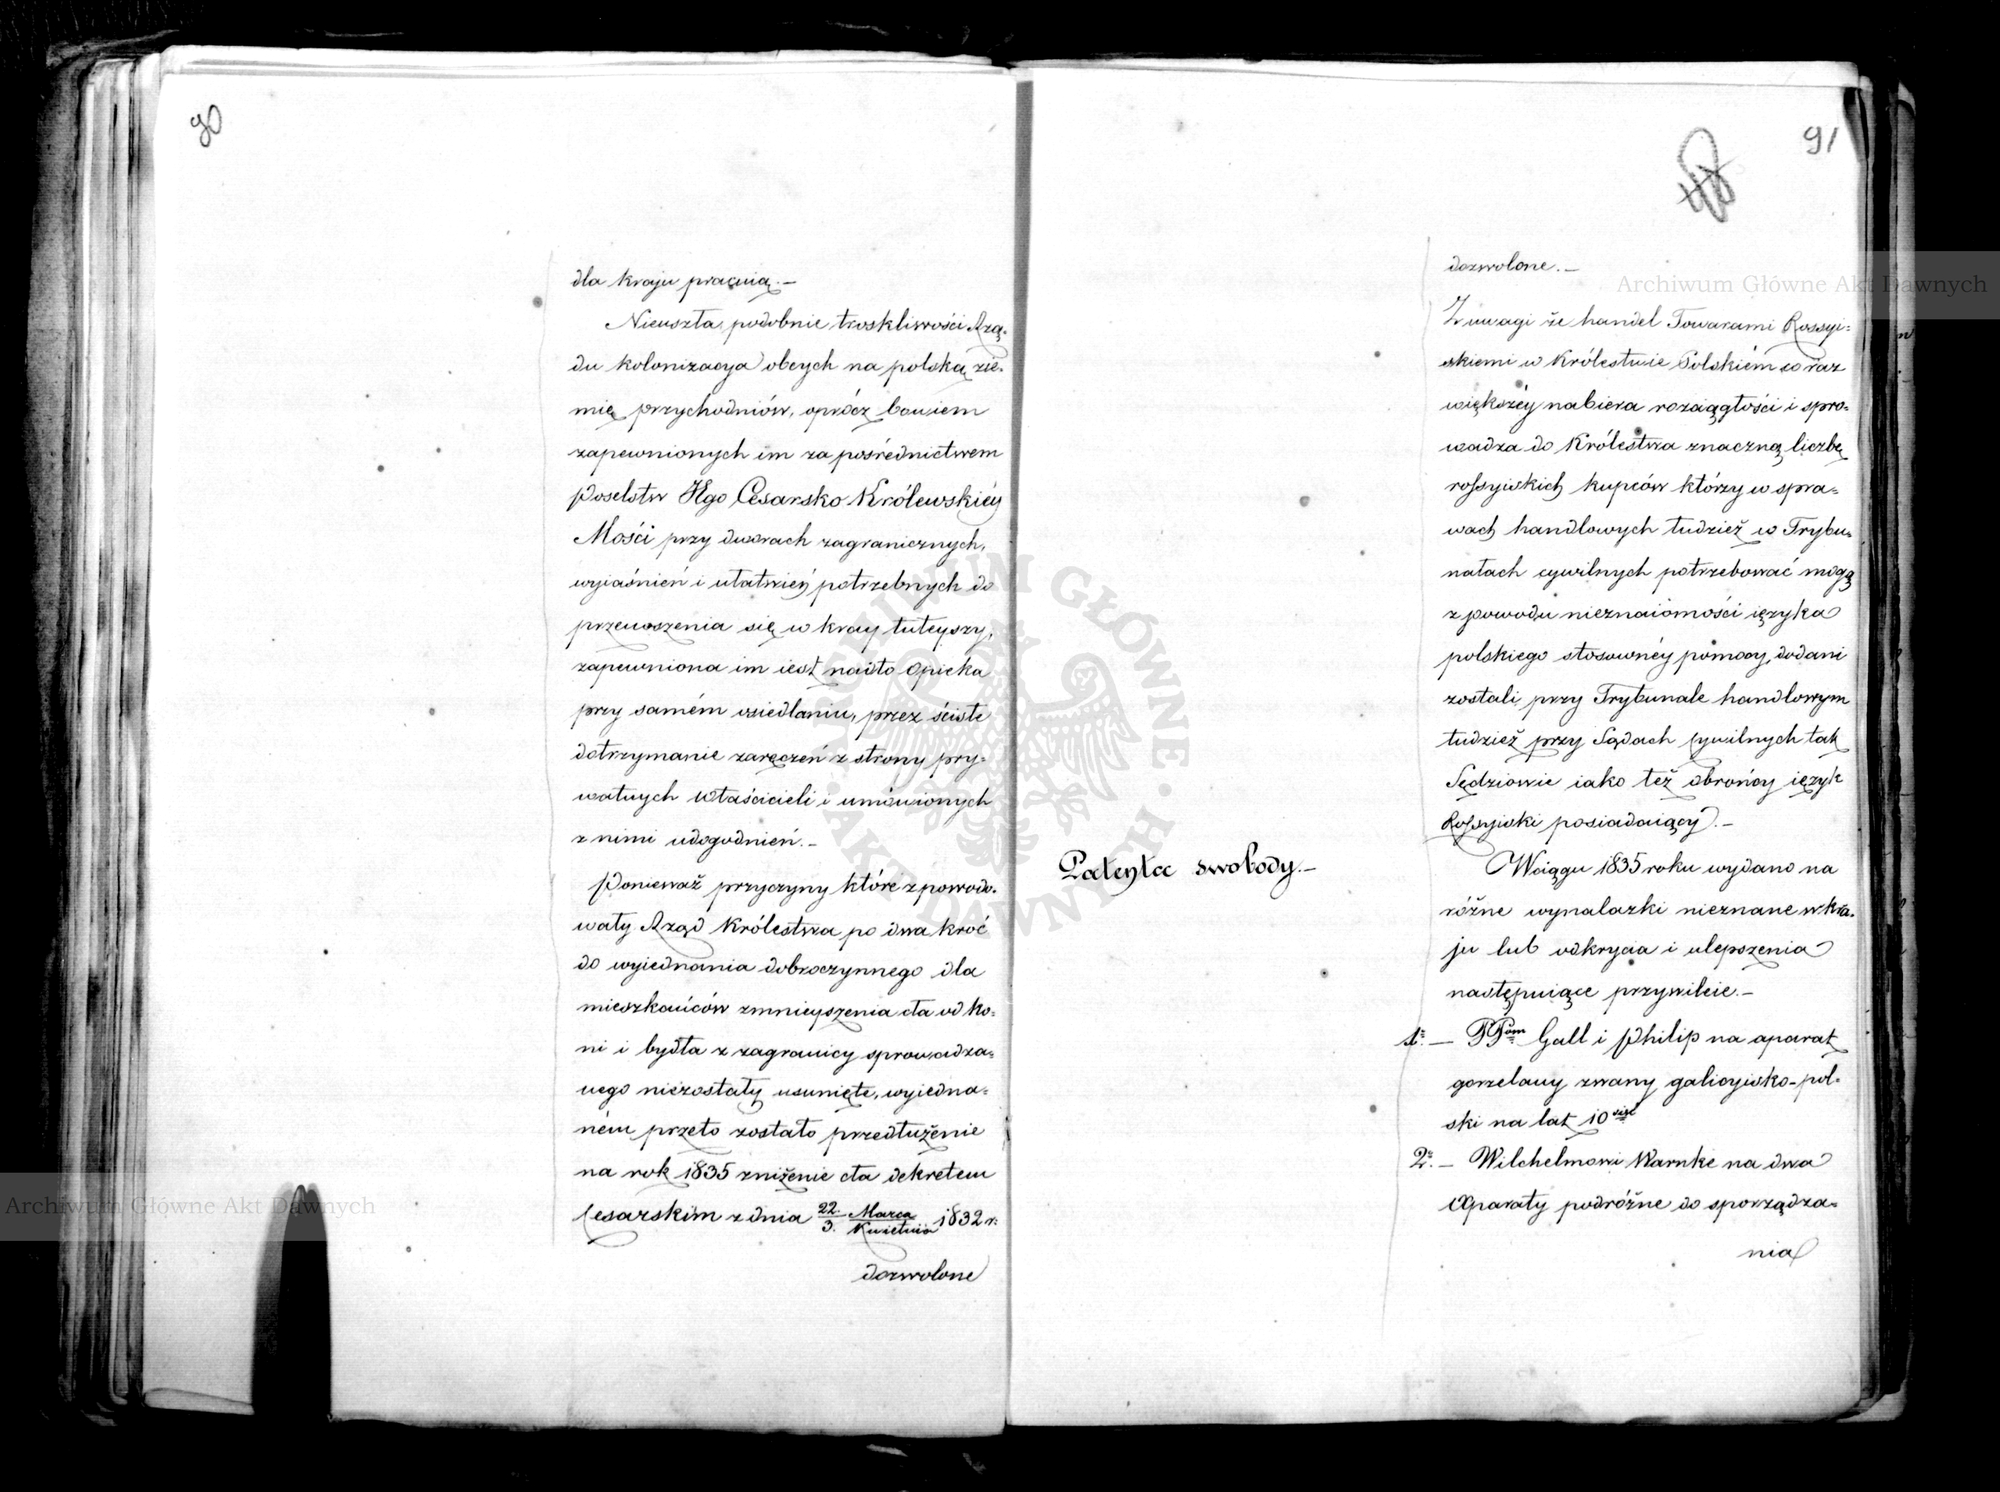 90
dla kraju pracuią.-
Nieuszła podobnie troskliwości Rzą-
du kolonizacya obcych na polską zie-
mię przychodniów, oprócz bowiem
zapewnionych im za pośrednictwem
Poselstw JEgo Cesarsko Królewskiéy
Mości przy dworach zagranicznych,
wyiaśnień i ułatwień potrzebnych do
przenoszenia się w kray tuteyszy,
zapewniona im iest nadto opieka
przy samém osiedlaniu, przez ścisłe
dotrzymanie zaręczeń z strony pry-
watnych właścicieli i umówionych
z nimi udogodnień.-
Ponieważ przyczyny które spowodo-
wały Rząd Królestwa po dwa kroć
do wyiednania dobroczynnego dla
mieszkańców zmnieyszenia cła od ko-
ni i bydła z zagranicy sprowadza-
nego niezostały usunięte, wyiedna-
ném przeto zostało przedłużenie
na rok 1835 zniżenie cła dekretem
Cesarskim z dnia 22. Marca / 3. Kwietnia 1832 r.
dozwolone
91
dozwolone.-
Z uwagi że handel Towarami Rossyi-
skiemi w Królestwie Polskiém co raz
większéy nabiera rozciągłości i spro-
wadza do Królestwa znaczną liczbę
rossyiskich kupców którzy w spra-
wach handlowych tudzież w Trybu-
nałach cywilnych potrzebować mogą
z powodu nieznaiomości ięzyka
polskiego stosownéy pomocy, dodani
zostali przy Trybunale handlowym
tudzież przy Sądach cywilnych tak
Sędziowie iako też obrońcy ięzyk
Rossyiski posiadaiący.-
Patenta swobody.-
Wciągu 1835 roku wydano na
różne wynalazki nieznane w kra-
ju lub odkrycia i ulepszenia
następuiące przywileie.-
1º.- PPom Gall i Philip na aparat
gorzelany zwany galicyisko-pol-
ski na lat 10sięć
2º.- Wilchelmowi Warnke na dwa
Aparaty podróżne do sporządza-
nia
Archiwum Główne Akt Dawnych
Archiwum Główne Akt Dawnych
ARCHIWUM GŁÓWNE AKT DAWNYCH